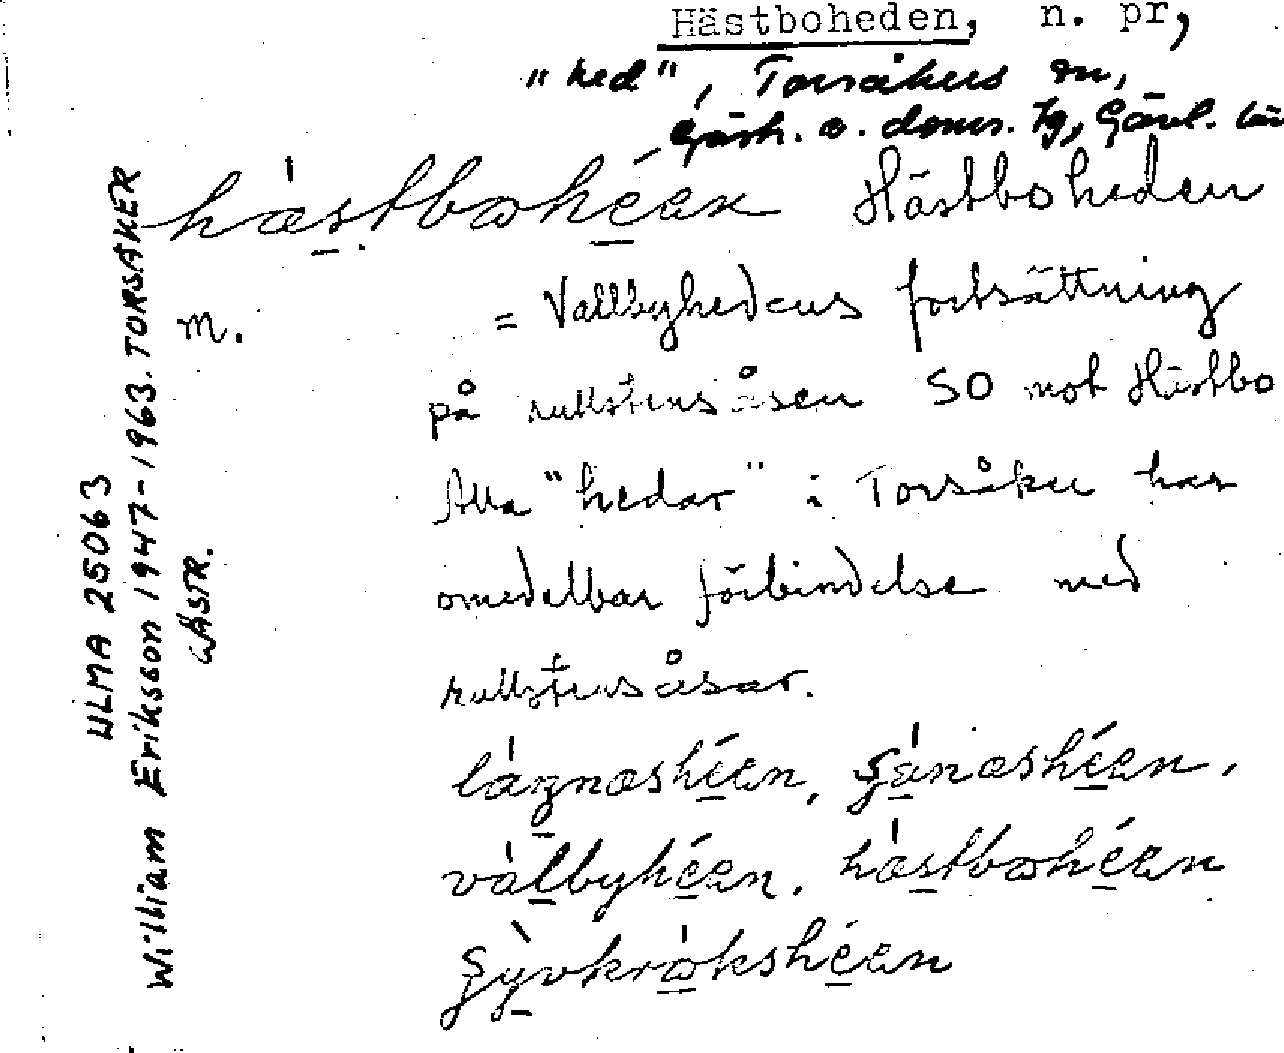 Hästboheden, n. pr,
"hed", Torsåkers sn,
Gästr. o. doms. tg, Gävl. län
hästbohéen Hästboheden
m. = Vallbyhedens fortsättning
på rullstensåsen SO mot Hästbo
Alla "hedar" i Torsåker har
omedelbar förbindelse med
rullstensåsar.
vàlbyhéen, hàstbohéen
ULMA 25063
William Eriksson 1947-1963. TORSÅKER
GÄSTR.